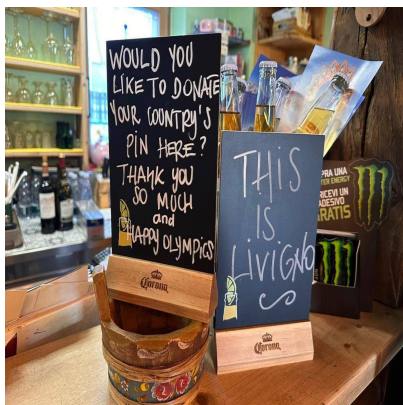 WOULD YOU
LIKE TO DONATE
YOUR COUNTRY'S
PIN HERE?
THANK YOU
SO MUCH
and
HAPPY OLYMPICS
Corona
THIS
IS
LIVIGNO
Corona
PRA UNA
ER ENERGY
RICEVI UN
ADESIVO
GRATIS